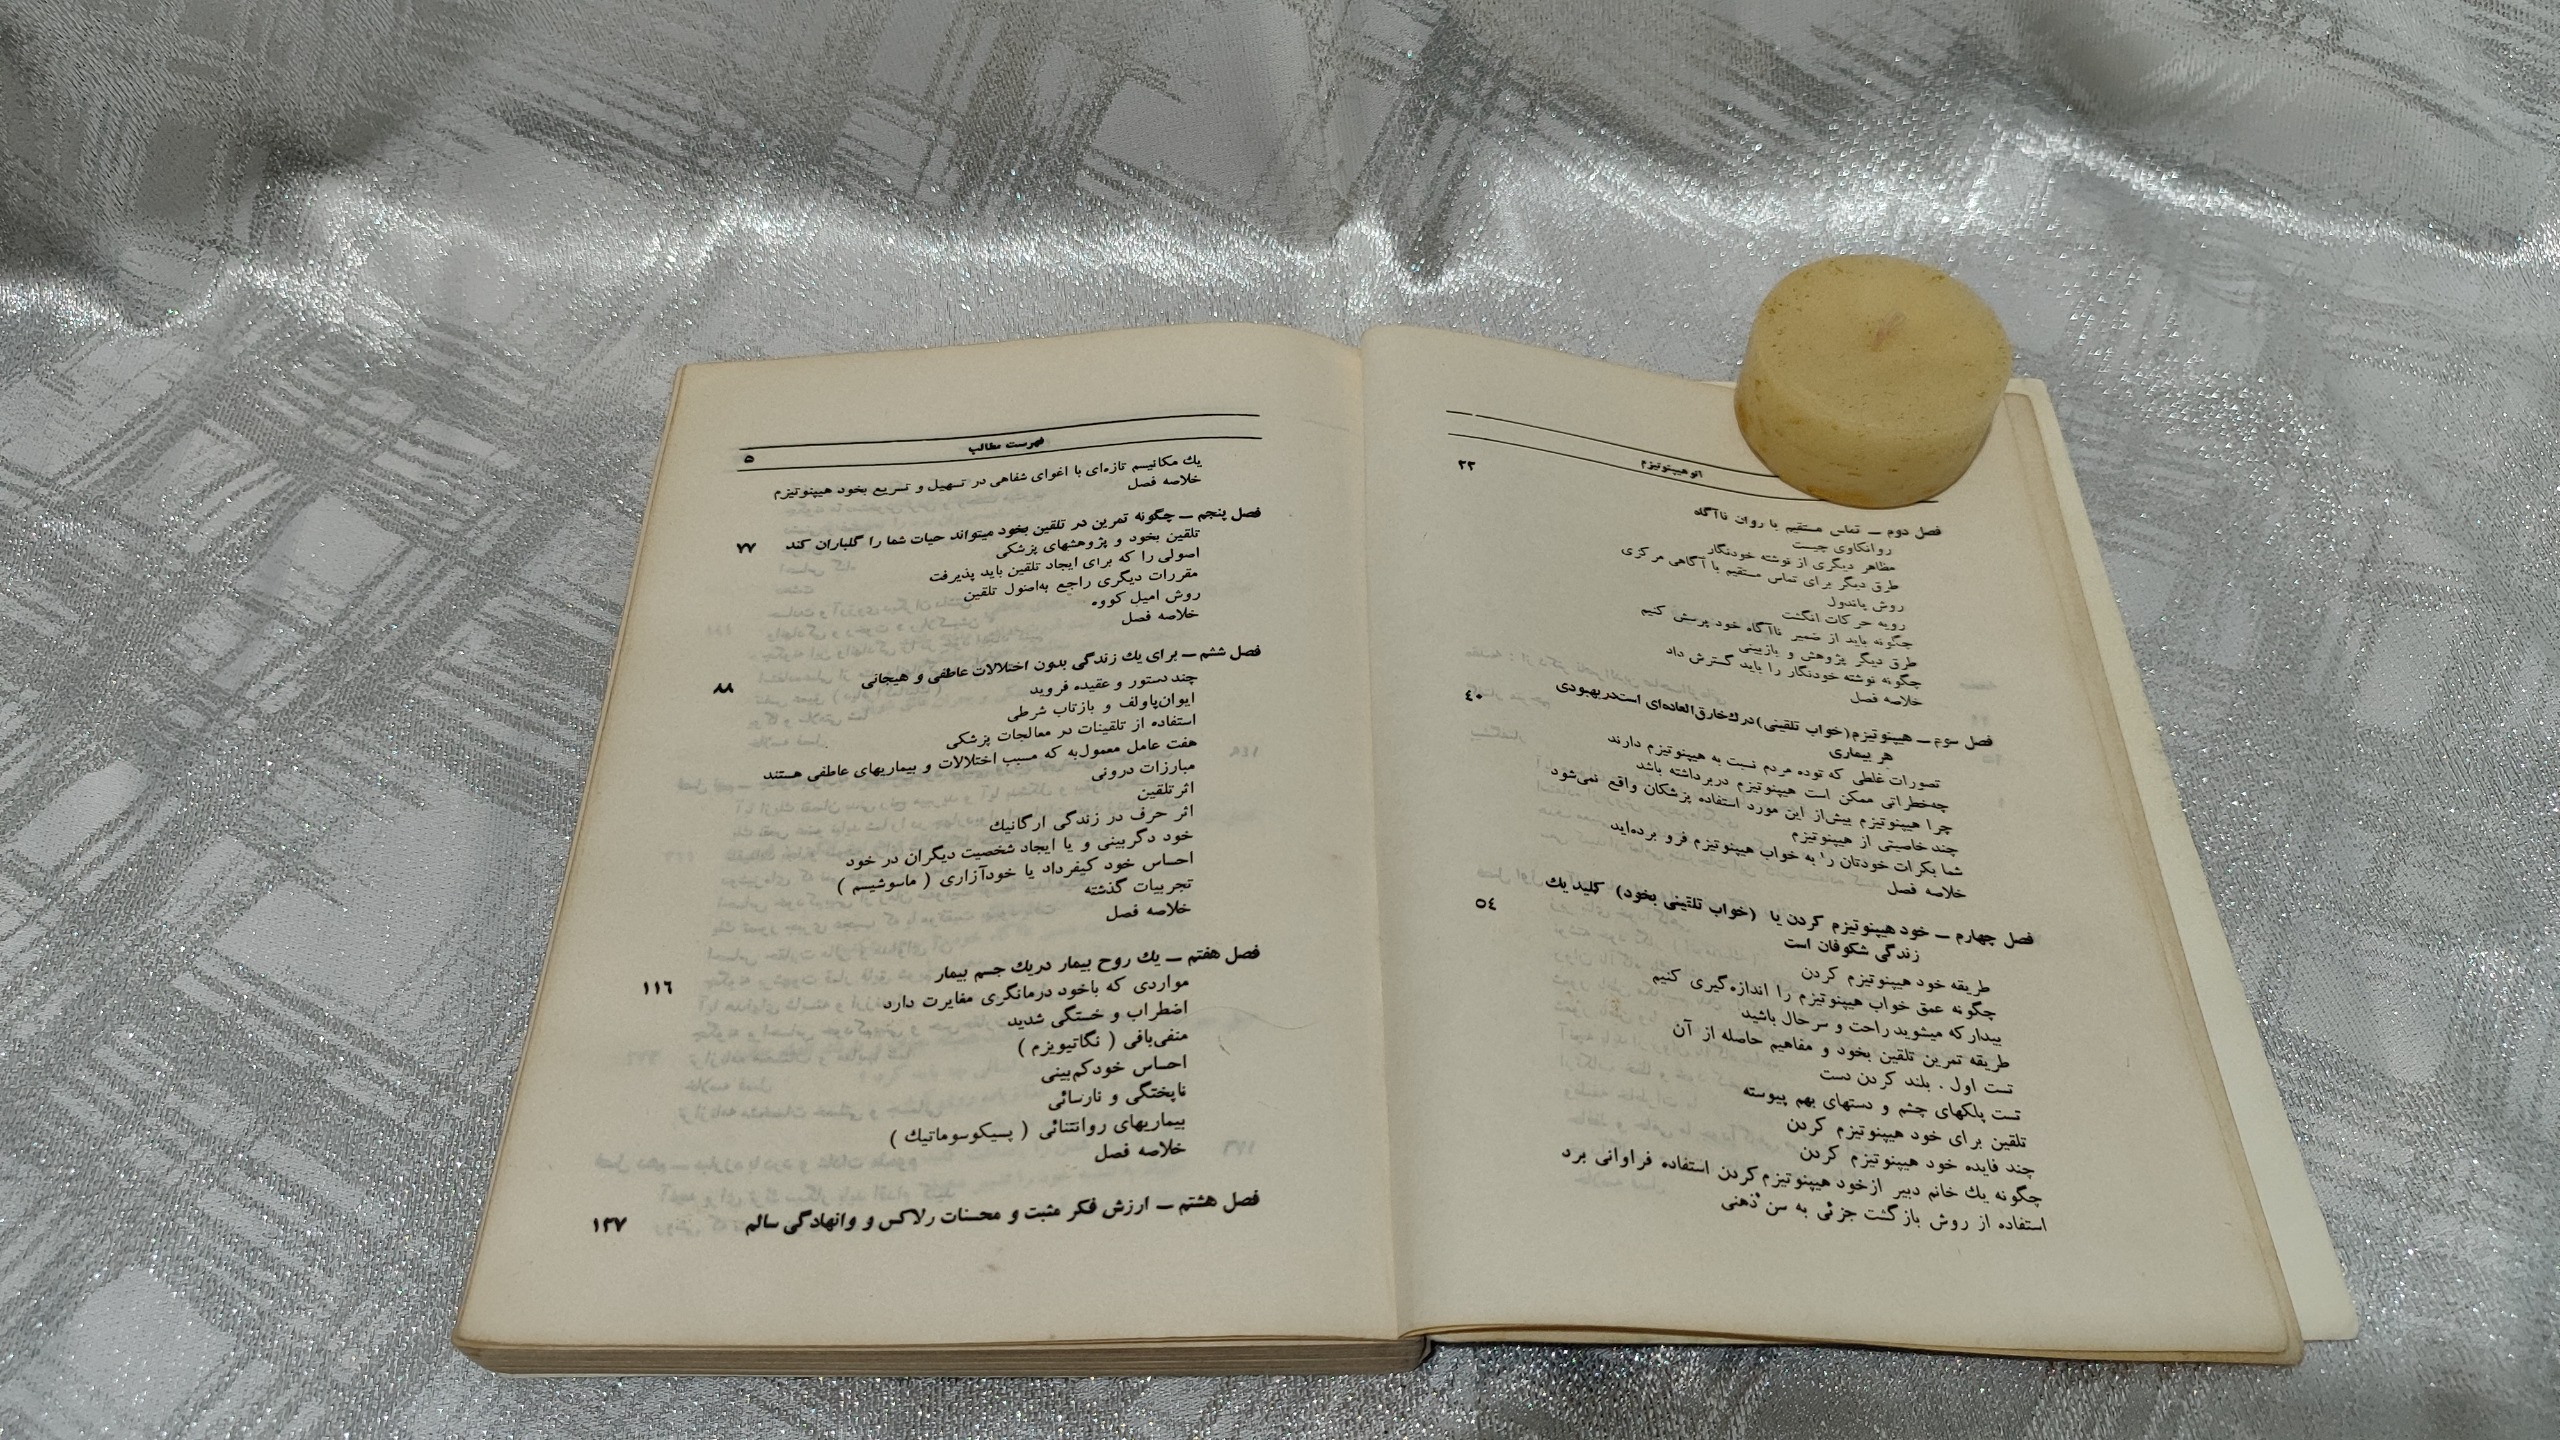 اتوهیپنوتیزم
فصل دوم ــ تماس مستقیم با روان ناآگاه ۲۲
روانکاوی چیست
مظاهر دیگری از نوشته خودنگار
طرق دیگر برای تماس مستقیم با آگاهی مرکزی
روش پاندول
رویه حرکات انگشت
چگونه باید از ضمیر ناآگاه خود پرسش کنیم
طرق دیگر پژوهش و بازبینی
چگونه نوشته خودنگار را باید گسترش داد
خلاصه فصل
فصل سوم ــ هیپنوتیزم(خواب تلقینی)درك‌خارق‌العاده‌ای است‌در‌بهبودی ٤۰
هر بیماری
تصورات غلطی که توده مردم نسبت به هیپنوتیزم دارند
چه‌خطراتی ممکن است هیپنوتیزم دربرداشته باشد
چرا هیپنوتیزم بیش‌از این مورد استفاده پزشکان واقع نمی‌شود
چند خاصیتی از هیپنوتیزم
شما بکرات خودتان را به خواب هیپنوتیزم فرو برده‌اید
خلاصه فصل
فصل چهارم ــ خود هیپنوتیزم کردن یا (خواب تلقینی بخود) کلید یك ٥٤
زندگی شکوفان است
طریقه خود هیپنوتیزم کردن
چگونه عمق خواب هیپنوتیزم را اندازه‌گیری کنیم
بیدار‌که میشوید راحت و سرحال باشید
طریقه تمرین تلقین بخود و مفاهیم حاصله از آن
تست اول . بلند کردن دست
تست پلکهای چشم و دستهای بهم پیوسته
تلقین برای خود هیپنوتیزم کردن
چند فایده خود هیپنوتیزم کردن
چگونه یك خانم دبیر ازخود هیپنوتیزم‌کردن استفاده فراوانی برد
استفاده از روش بازگشت جزئی به سن ذهنی
فهرست مطالب ۵
یك مکانیسم تازه‌ای با اغوای شفاهی در تسهیل و تسریع بخود هیپنوتیزم
خلاصه فصل
فصل پنجم ــ چگونه تمرین در تلقین بخود میتواند حیات شما را گلباران کند ۷۷
تلقین بخود و پژوهشهای پزشکی
اصولی را که برای ایجاد تلقین باید پذیرفت
مقررات دیگری راجع به‌اصول تلقین
روش امیل کووه
خلاصه فصل
فصل ششم ــ برای یك زندگی بدون اختلالات عاطفی و هیجانی ۸۸
چند دستور و عقیده فروید
ایوان‌پاولف و بازتاب شرطی
استفاده از تلقینات در معالجات پزشکی
هفت عامل معمول‌به که مسبب اختلالات و بیماریهای عاطفی هستند
مبارزات درونی
اثر‌تلقین
اثر حرف در زندگی ارگانیك
خود دگربینی و یا ایجاد شخصیت دیگران در خود
احساس خود کیفرداد یا خودآزاری ( ماسوشیسم )
تجربیات گذشته
خلاصه فصل
فصل هفتم ــ یك روح بیمار دریك جسم بیمار ۱۱٦
مواردی که باخود درمانگری مغایرت دارد
اضطراب و خستگی شدید
منفی‌بافی ( نگاتیویزم )
احساس خودکم‌بینی
ناپختگی و نارسائی
بیماریهای روانتنائی ( پسیکوسوماتیك )
خلاصه فصل
فصل هشتم ــ ارزش فکر مثبت و محسنات رلاکس و وانهادگی سالم ۱۳۷